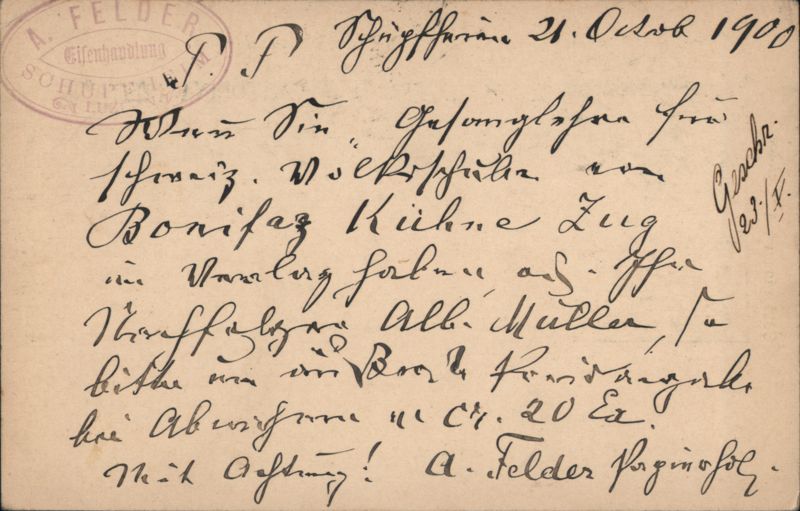 A. FELDER
Eisenhandlung
SCHÜPFHEIM
P. P Schüpfheim 21. Octob 1900
Wenn Sie „Gesanglehre für
schweiz. Volksschulen von
Bonifaz Kühne Zug
im Verlag haben, od. Ihr
Nachfolger Alb. Müller, so
bitte um Preisangabe
bei Abnahme v. ca. 20 Ex.
Mit Achtung! A. Felder Papierhdlg.
Geschr.
23./X.